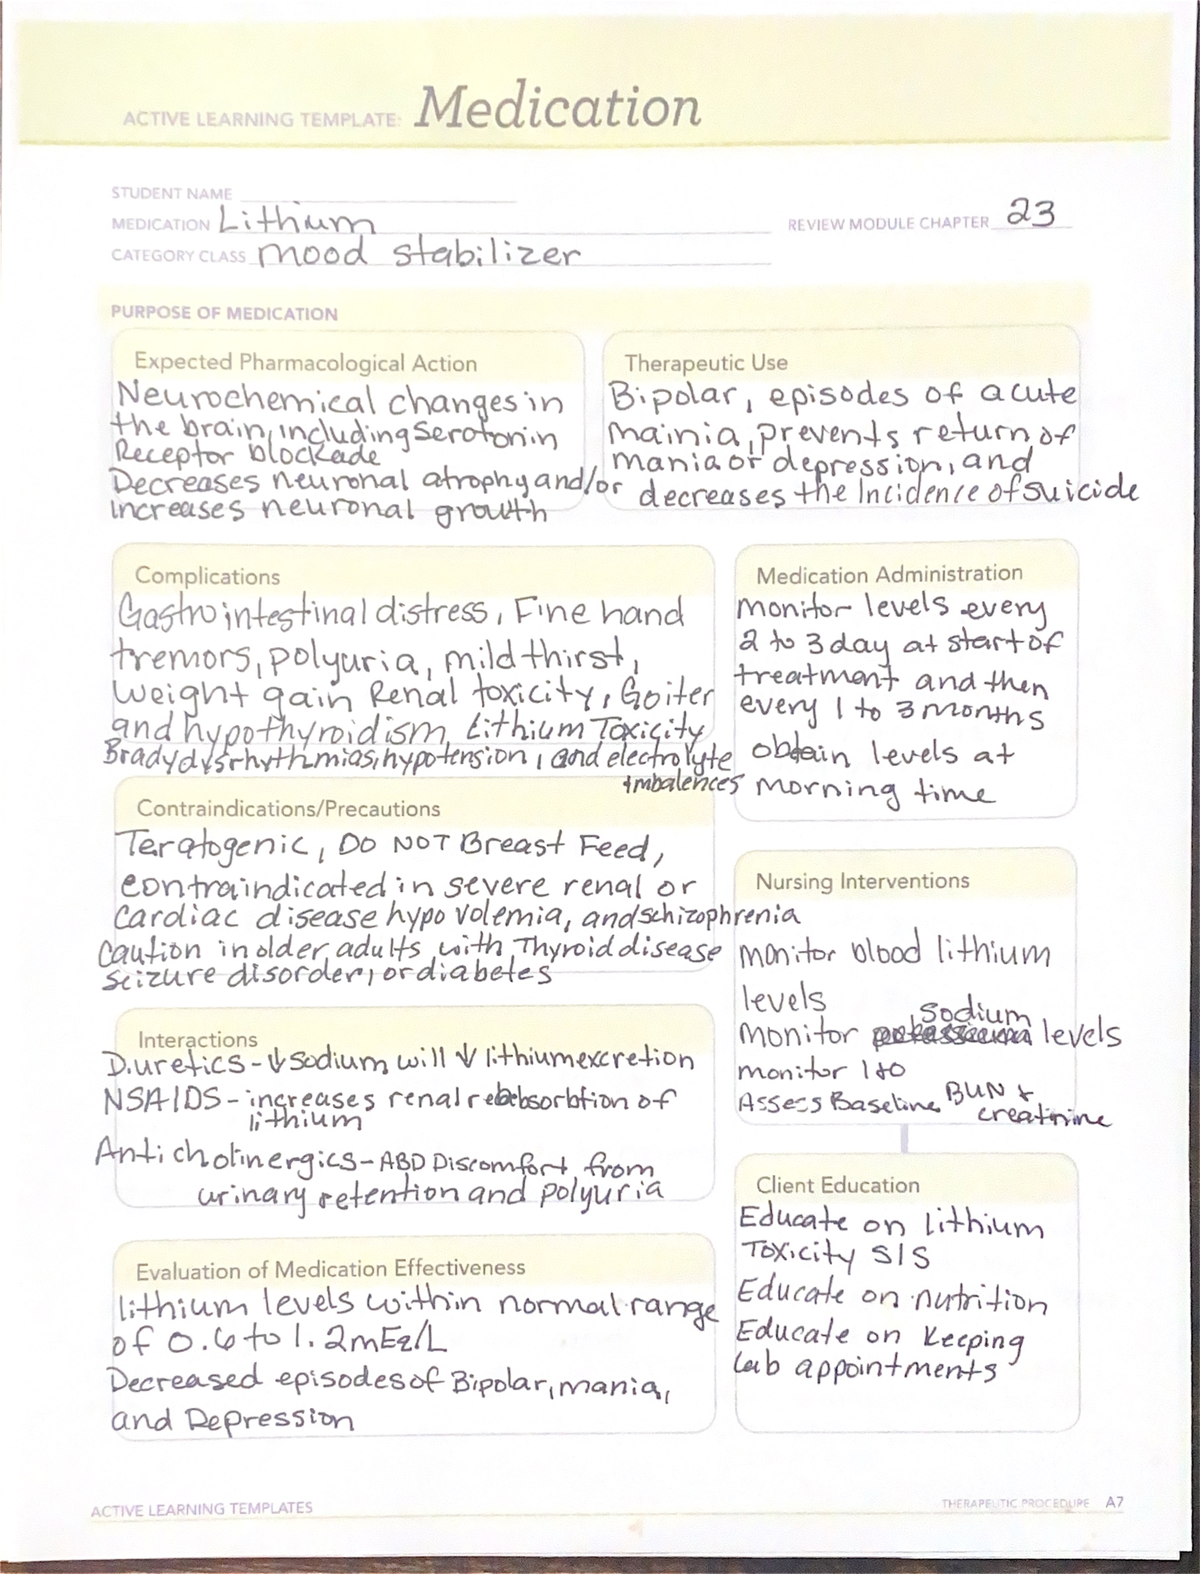 ACTIVE LEARNING TEMPLATE: Medication
STUDENT NAME
MEDICATION Lithium
REVIEW MODULE CHAPTER 23
CATEGORY CLASS mood stabilizer
PURPOSE OF MEDICATION
Expected Pharmacological Action
Neurochemical changes in
the brain, including serotonin
Receptor blockade
Decreases neuronal atrophy and/or
increases neuronal growth
Therapeutic Use
Bipolar, episodes of acute
mainia, prevents return of
mania or depression, and
decreases the Incidence of suicide
Complications
Gastrointestinal distress, Fine hand
tremors, polyuria, mild thirst,
weight gain Renal toxicity, Goiter
and hypothyroidism, Lithium Toxicity
Bradydysrhythmias, hypotension, and electrolyte
imbalences
Medication Administration
monitor levels every
2 to 3 day at start of
treatment and then
every 1 to 3 months
obtain levels at
morning time
Contraindications/Precautions
Teratogenic, DO NOT Breast Feed,
contraindicated in severe renal or
cardiac disease hypovolemia, and schizophrenia
caution in older adults with Thyroid disease
seizure disorder, or diabetes
Nursing Interventions
monitor blood lithium
levels
monitor sodium levels
monitor I+O
Assess Baseline BUN +
creatinine
Interactions
Diuretics - ↓ Sodium will ↓ lithium excretion
NSAIDS - increases renal reabsorbtion of
lithium
Anticholinergics - ABD Discomfort from
urinary retention and polyuria
Client Education
Educate on lithium
Toxicity S/S
Educate on nutrition
Educate on Keeping
lab appointments
Evaluation of Medication Effectiveness
lithium levels within normal range
of 0.6 to 1.2mEq/L
Decreased episodes of Bipolar, mania,
and Depression
ACTIVE LEARNING TEMPLATES
THERAPEUTIC PROCEDURE A7